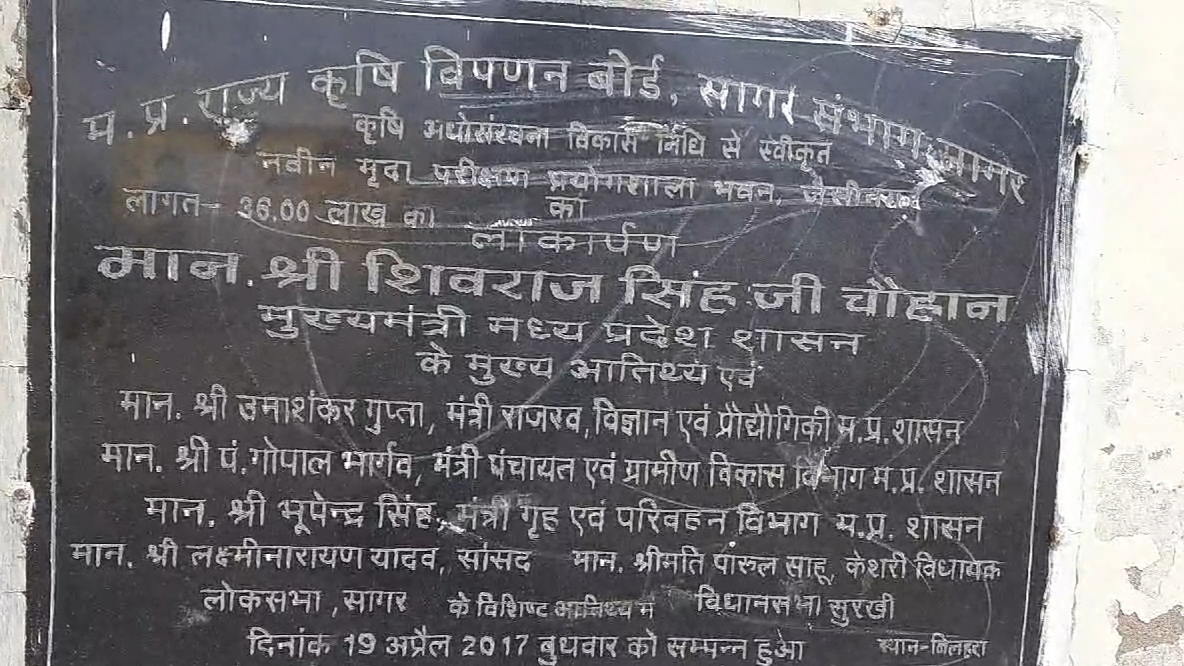 म.प्र.राज्य कृषि विपणन बोर्ड, सागर संभाग,सागर
कृषि अधोसंरचना विकास निधि से स्वीकृत
नवीन मृदा परीक्षण प्रयोगशाला भवन, जैसीनगर
लागत- 36.00 लाख का का
लोकार्पण
मान.श्री शिवराज सिंह जी चौहान
मुख्यमंत्री मध्य प्रदेश शासन
के मुख्य आतिथ्य एवं
मान. श्री उमाशंकर गुप्ता, मंत्री राजस्व,विज्ञान एवं प्रौद्यौगिकी म.प्र.शासन
मान. श्री पं.गोपाल भार्गव, मंत्री पंचायत एवं ग्रामीण विकास विभाग म.प्र. शासन
मान. श्री भूपेन्द्र सिंह, मंत्री गृह एवं परिवहन विभाग म.प्र. शासन
मान. श्री लक्ष्मीनारायण यादव, सांसद मान. श्रीमति पारुल साहू, केशरी विधायक
लोकसभा ,सागर के विशिष्ट आतिथ्य में विधानसभा सुरखी
दिनांक 19 अप्रैल 2017 बुधवार को सम्पन्न हुआ स्थान-बिलहरा